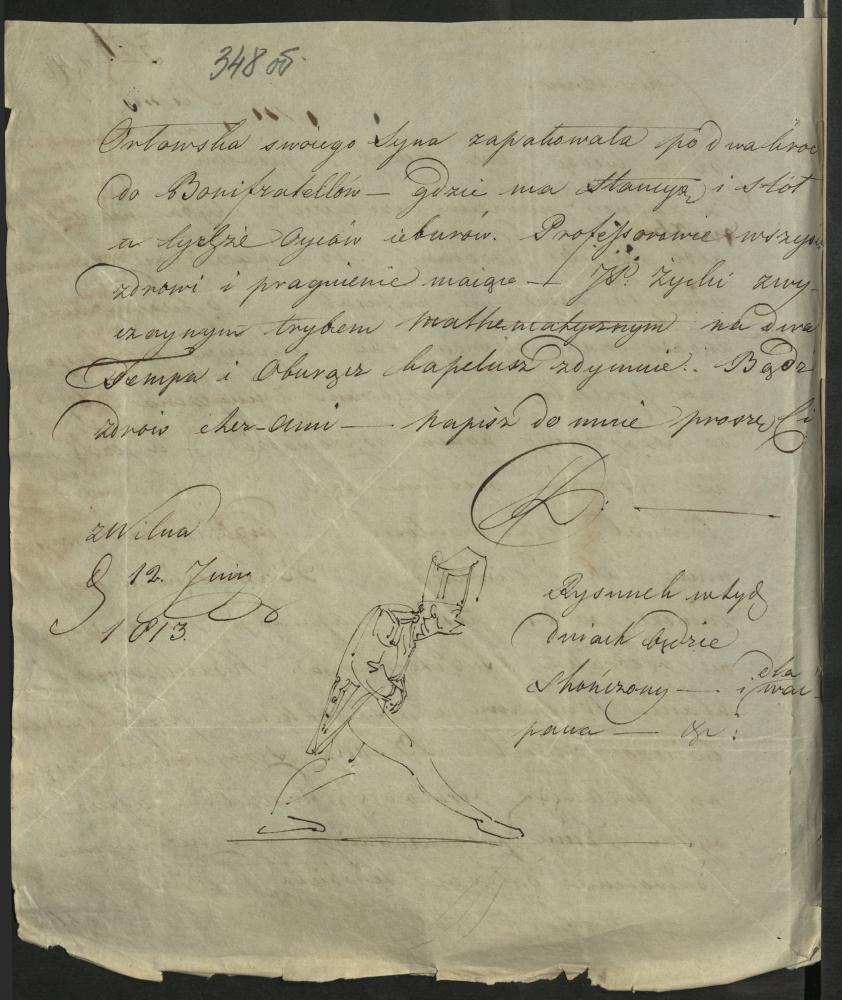 348 об.
Orłowska swoiego Syna zapakowała po dwakroć
do Bonifratellów — gdzie ma Stancyą i stół
u tychże Oyców
Professorowie
zdrowi i pragnienie maiące — JP. Życki zwy-
czaynym trybem mathematycznym na dwa
Tempa i Oburącz kapelusz zdymuie. Bądź
zdrow cher-Ami — napisz do mnie proszę Ci
z Wilna
D 12. Juny
1813.
Rysunek w tych
dniach będzie
skończony — i dla
pana —